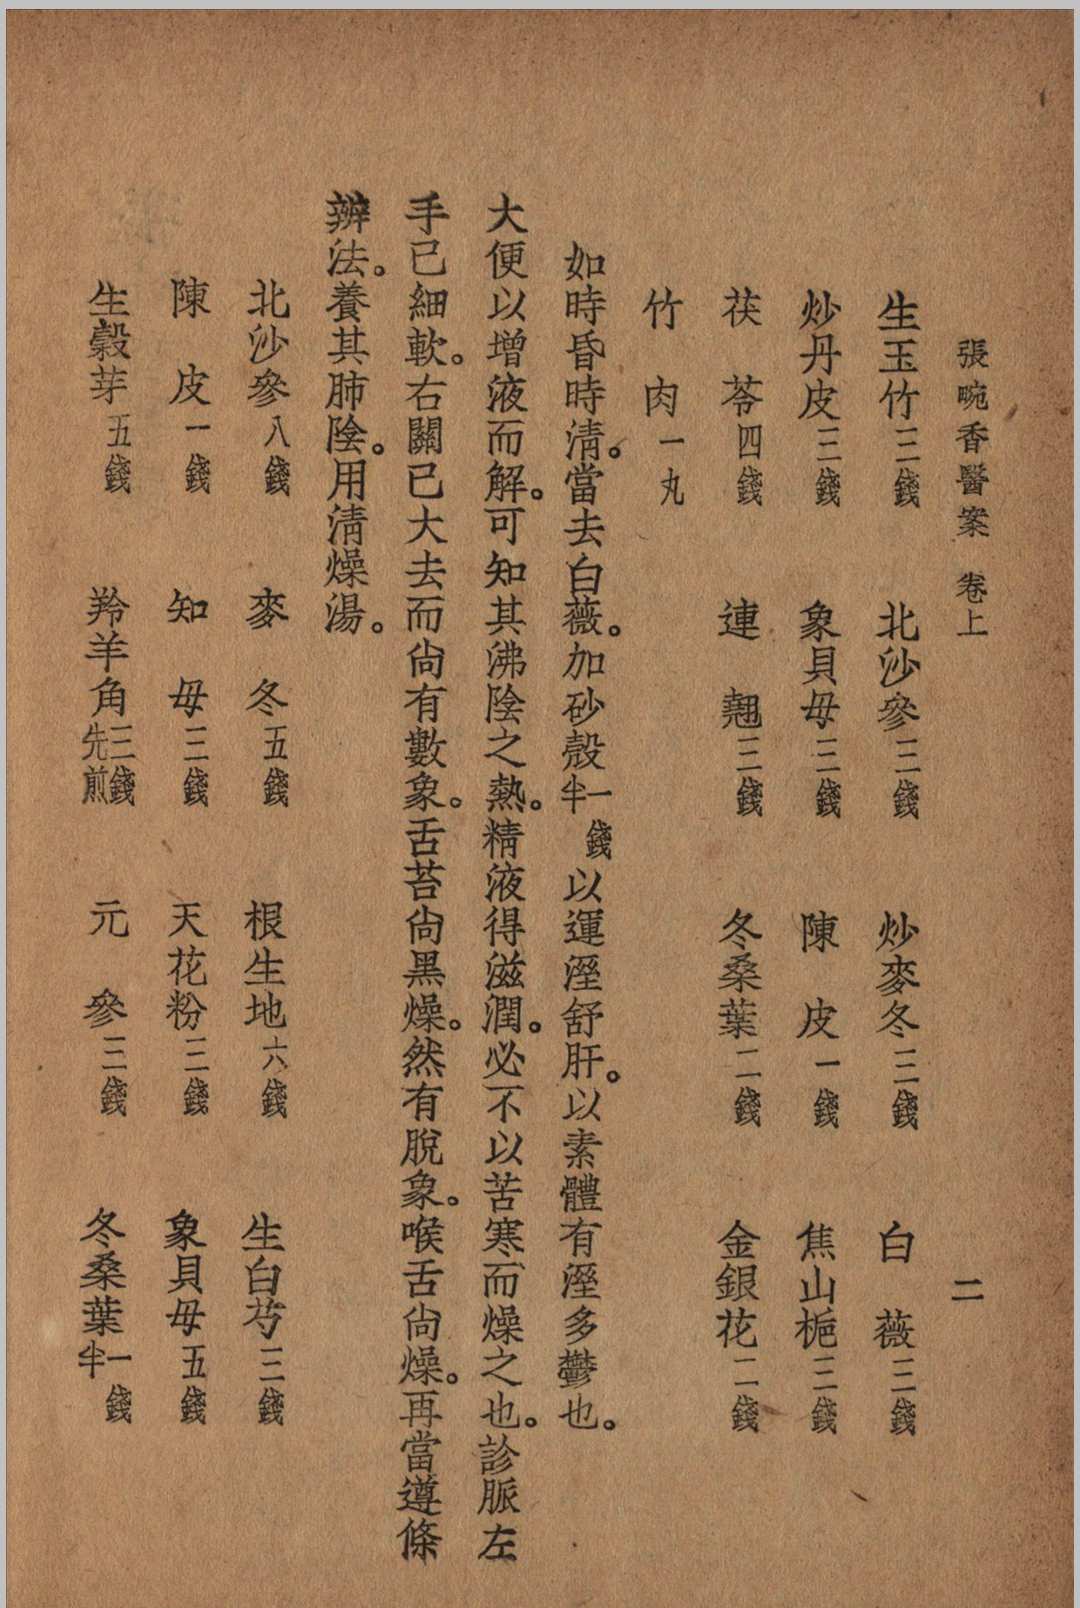 張畹香醫案 卷上 二
生玉竹三錢 北沙參三錢 炒麥冬三錢 白薇三錢
炒丹皮三錢 象貝母三錢 陳皮一錢 焦山梔三錢
茯苓四錢 連翹三錢 冬桑葉二錢 金銀花二錢
竹肉一丸
如時昏時清。當去白薇。加砂殼一錢半以運溼舒肝。以素體有溼多鬱也。
大便以增液而解。可知其沸陰之熱。精液得滋潤。必不以苦寒而燥之也。診脈左
手已細軟。右關已大去而尙有數象。舌苔尙黑燥。然有脫象。喉舌尙燥。再當遵條
辨法。養其肺陰。用淸燥湯。
北沙參八錢 麥冬五錢 根生地六錢 生白芍三錢
陳皮一錢 知母三錢 天花粉三錢 象貝母五錢
生穀芽五錢 羚羊角三錢先煎 元參三錢 冬桑葉一錢半